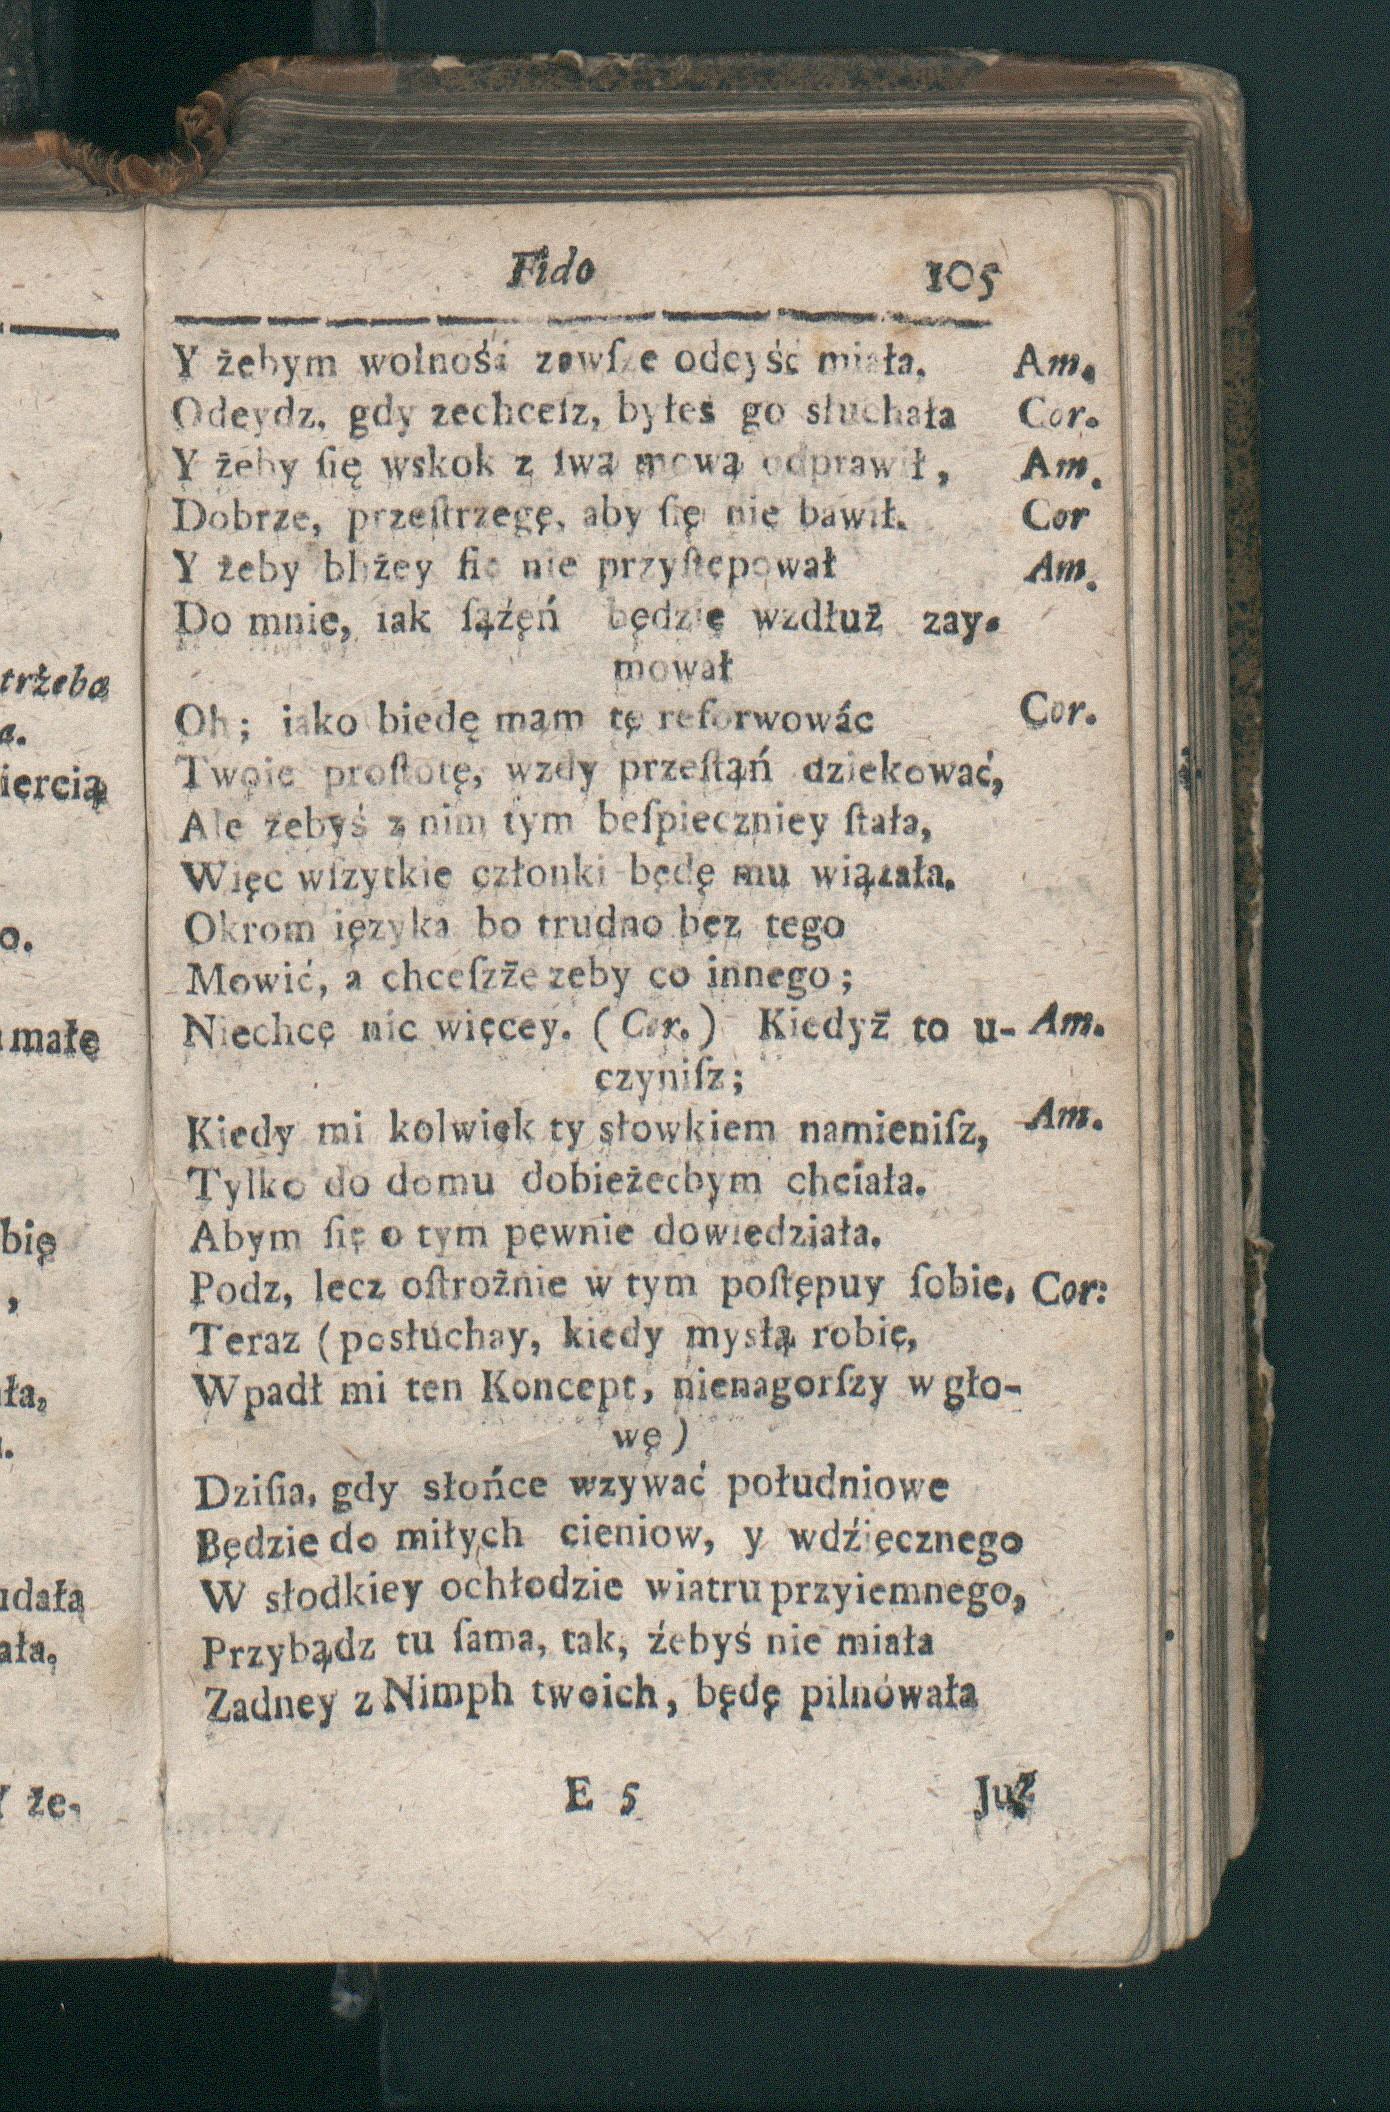 trżeba
a.
iercią
o.
małę
bię
,
ła,
udałą
ała,
Y że-
Fido 105
Y żebym wolnośi zawſze odcyść miała. Am.
Odeydz, gdy zechceſz, byłeś go słuchała Cor.
Y żeby ſię wskok z ſwą mową odprawił, Am.
Dobrze, przeſtrzegę, aby ſię nie bawił. Cor
Y żeby bliżey ſię nie przyſtępował Am.
Do mnie, iak ſąźęń będzię wzdłuż zay-
mował
Oh; iako biedę mąm tę reforwowác Cor.
Twoie proſtotę, wzdy przeſtąń dziekować,
Ale żebyś z nim tym beſpieczniey ſtała,
Więc wſzytkie członki będę mu wiązała.
Okrom ięzyka bo trudno bez tego
Mowić, a chceſzże zeby co innego;
Niechcę nic więcey. (Cor.) Kiedyż to u- Am.
czyniſz;
Kiedy mi kolwiek ty słowkiem namieniſz, Am.
Tylko do domu dobieżecbym chciała.
Abym ſię o tym pewnie dowiedziała.
Podz, lecz oſtrożnie w tym poſtępuy ſobie, Cor:
Teraz (posłuchay, kiedy mysłą robię,
Wpadł mi ten Koncept, nienagorſzy w gło-
wę)
Dziſia, gdy słońce wzywać południowe
Będzie do miłych cieniow, y wdźięcznego
W słodkiey ochłodzie wiatru przyiemnego,
Przybądz tu ſama, tak, źebyś nie miała
Zadney z Nimph twoich, będę pilnówała
E 5 Już